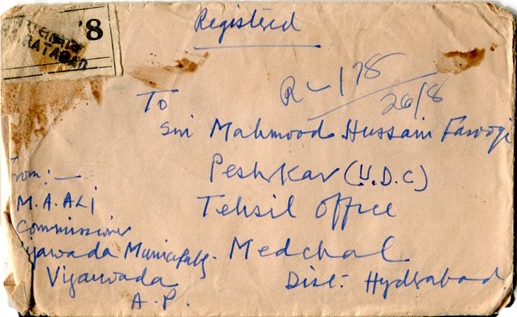 Registered
8
R-178
26/8
To
Sri Mahmood Hussain Farooqi
Peshkar (U.D.C)
Tehsil Office
Medchal
Dist:- Hyderabad
From:-
M.A.ALi
Commissioner
Vijawada Municipality.
Vijawada
A.P.